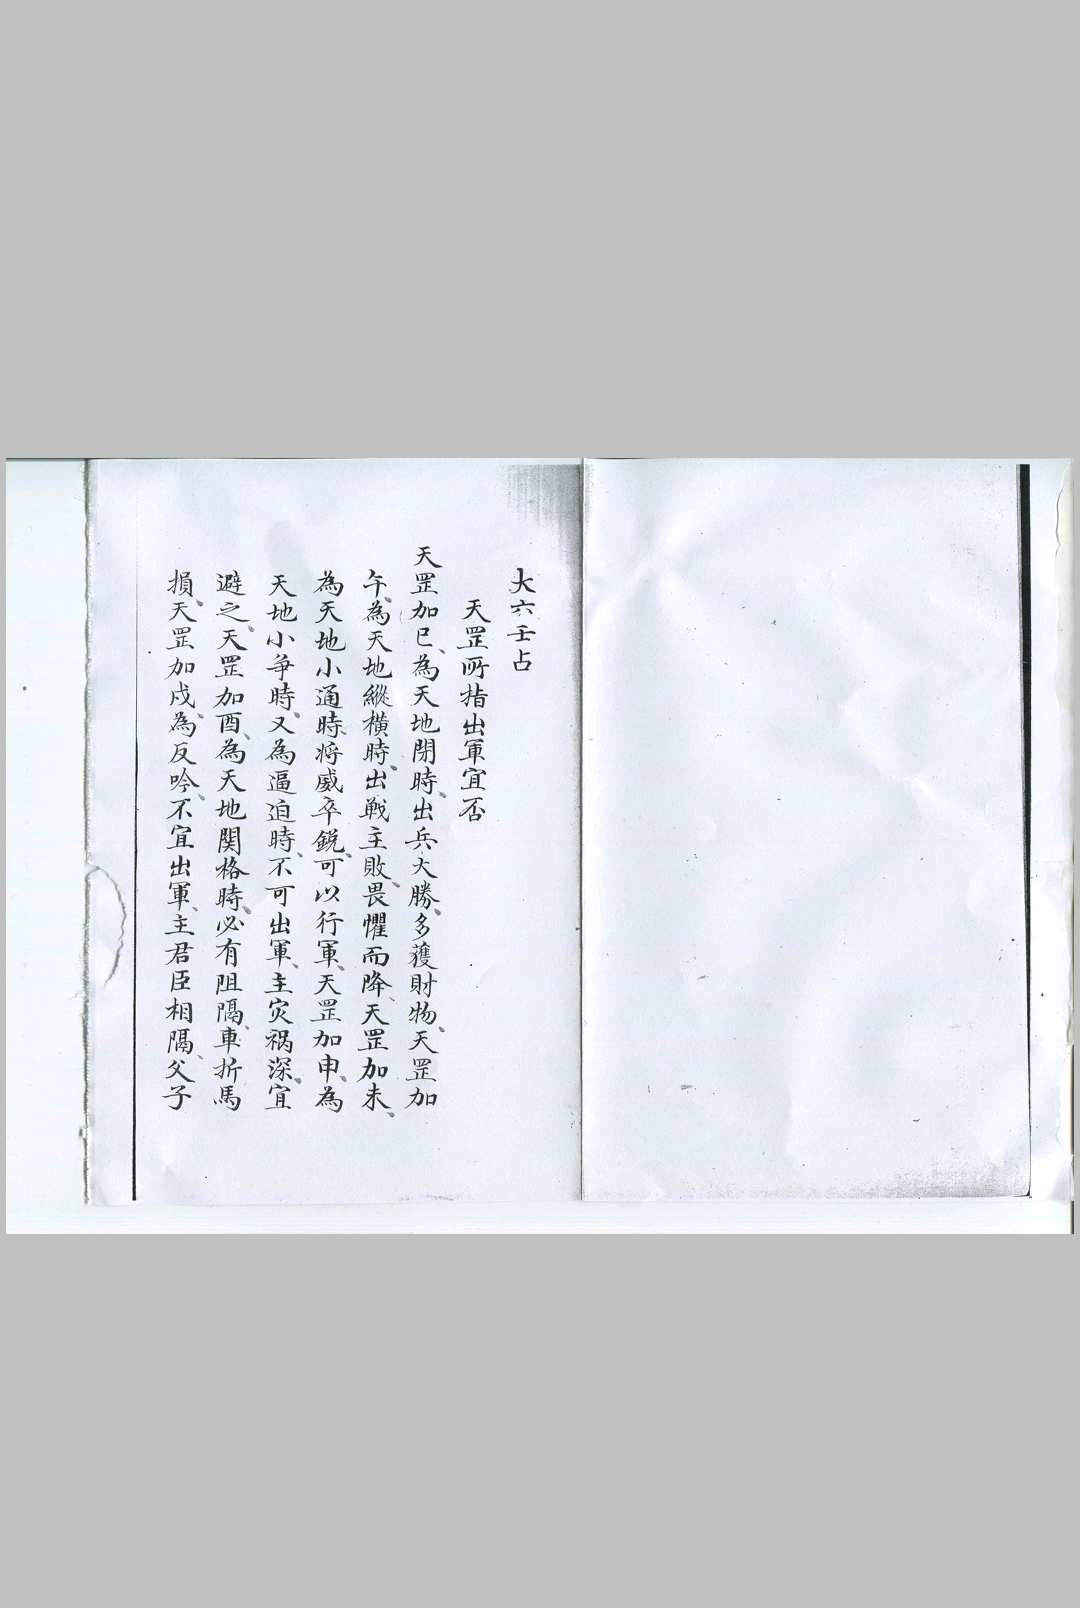 大六壬占
天罡所指出軍宜否
天罡加巳、為天地閉時、出兵大勝、多獲財物、天罡加
午、為天地縱橫時、出戦主敗、畏懼而降、天罡加未、
為天地小通時、将威卒銳、可以行軍、天罡加申、為
天地小争時、又為逼迫時、不可出軍、主灾禍深、宜
避之、天罡加酉、為天地関格時、必有阻隔、車折馬
損、天罡加戍、為反吟、不宜出軍、主君臣相隔、父子